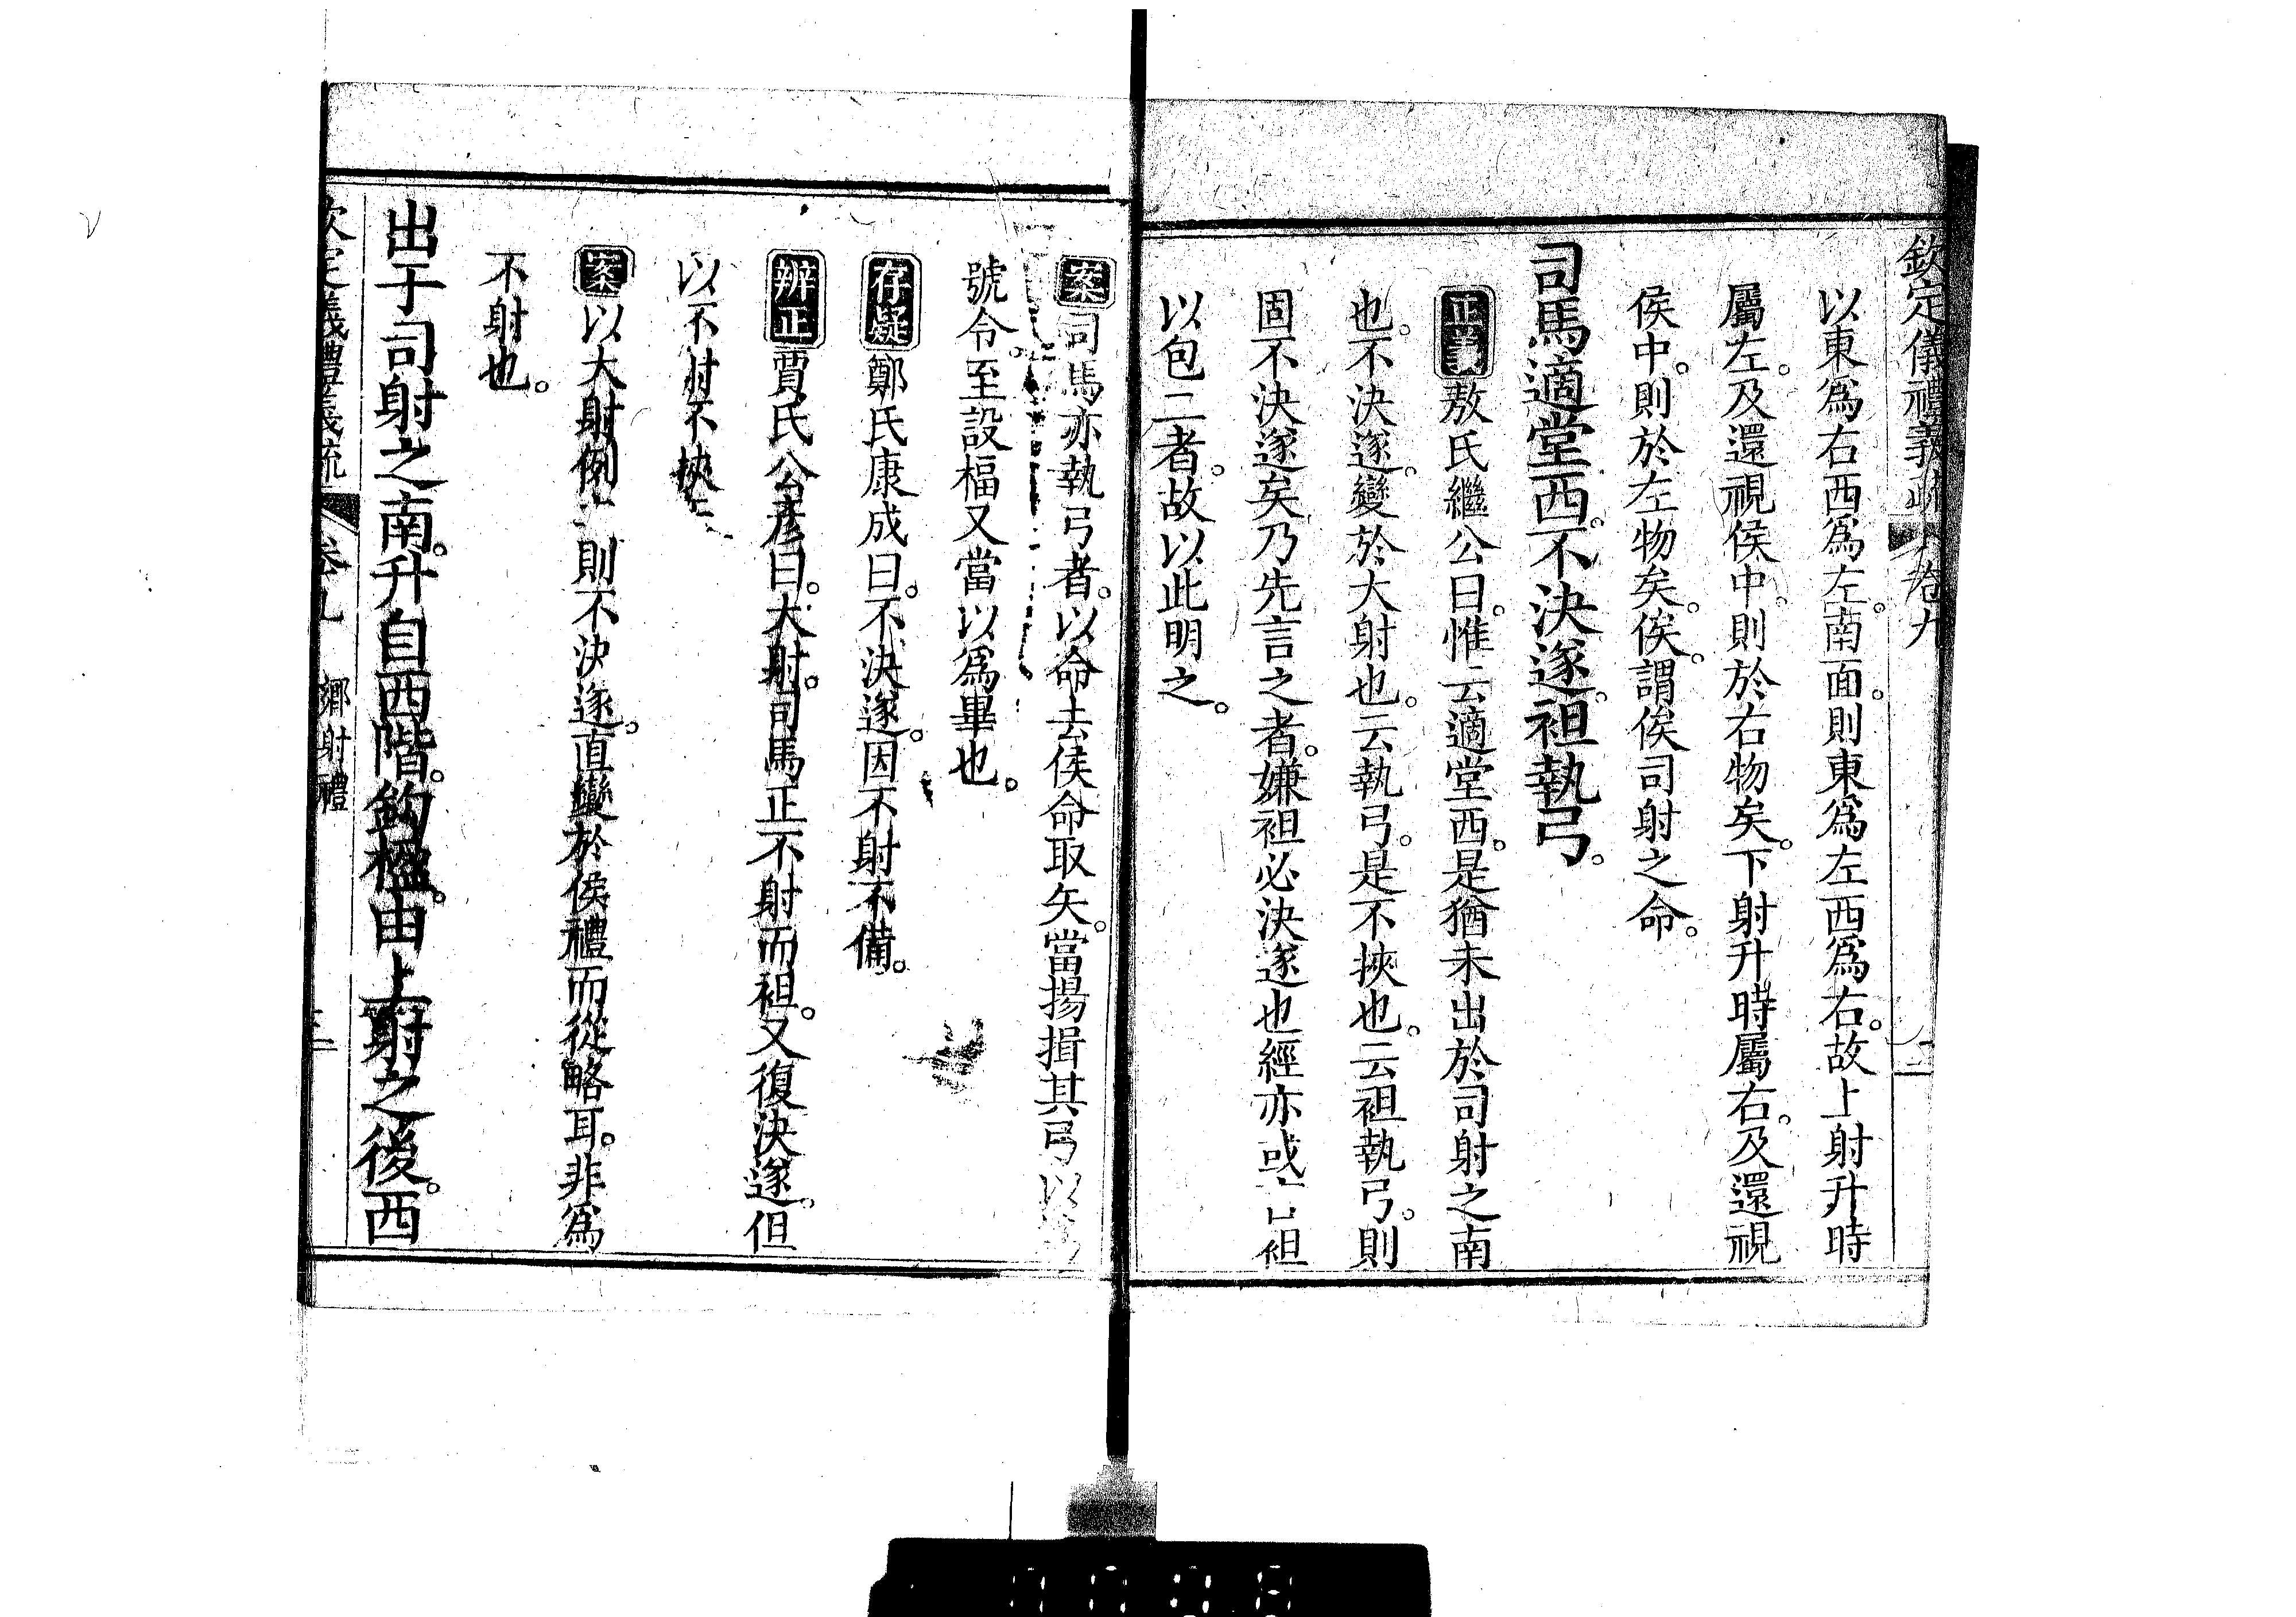 欽定儀禮義疏 卷九 二
以東爲右西爲左。南面。則東爲左西爲右。故上射升時
屬左。及還視侯中。則於右物矣。下射升時屬右。及還視
侯中。則於左物矣。俟。謂俟司射之命。
司馬適堂西。不決遂。袒執弓。
正義敖氏繼公曰。惟云適堂西。是猶未出於司射之南
也。不決遂。變於大射也。云執弓。是不挾也。云袒執弓。則
固不決遂矣乃先言之者。嫌袒必決遂也經亦或袒
以包二者。故以此明之。
案司馬亦執弓者。以命去侯命取矢。當揚揖其弓以
號令。至設楅又當以爲畢也。
存疑鄭氏康成曰。不決遂。因不射不備。
辨正賈氏公彥曰。大射。司馬正不射而袒。又復決遂。但
以不射不挾
案以大射例則不決遂。直變於侯禮而從略耳。非爲
不射也。
出于司射之南。升自西階。鉤楹。由上射之後。西
欽定儀禮義疏 卷九 鄉射禮 三